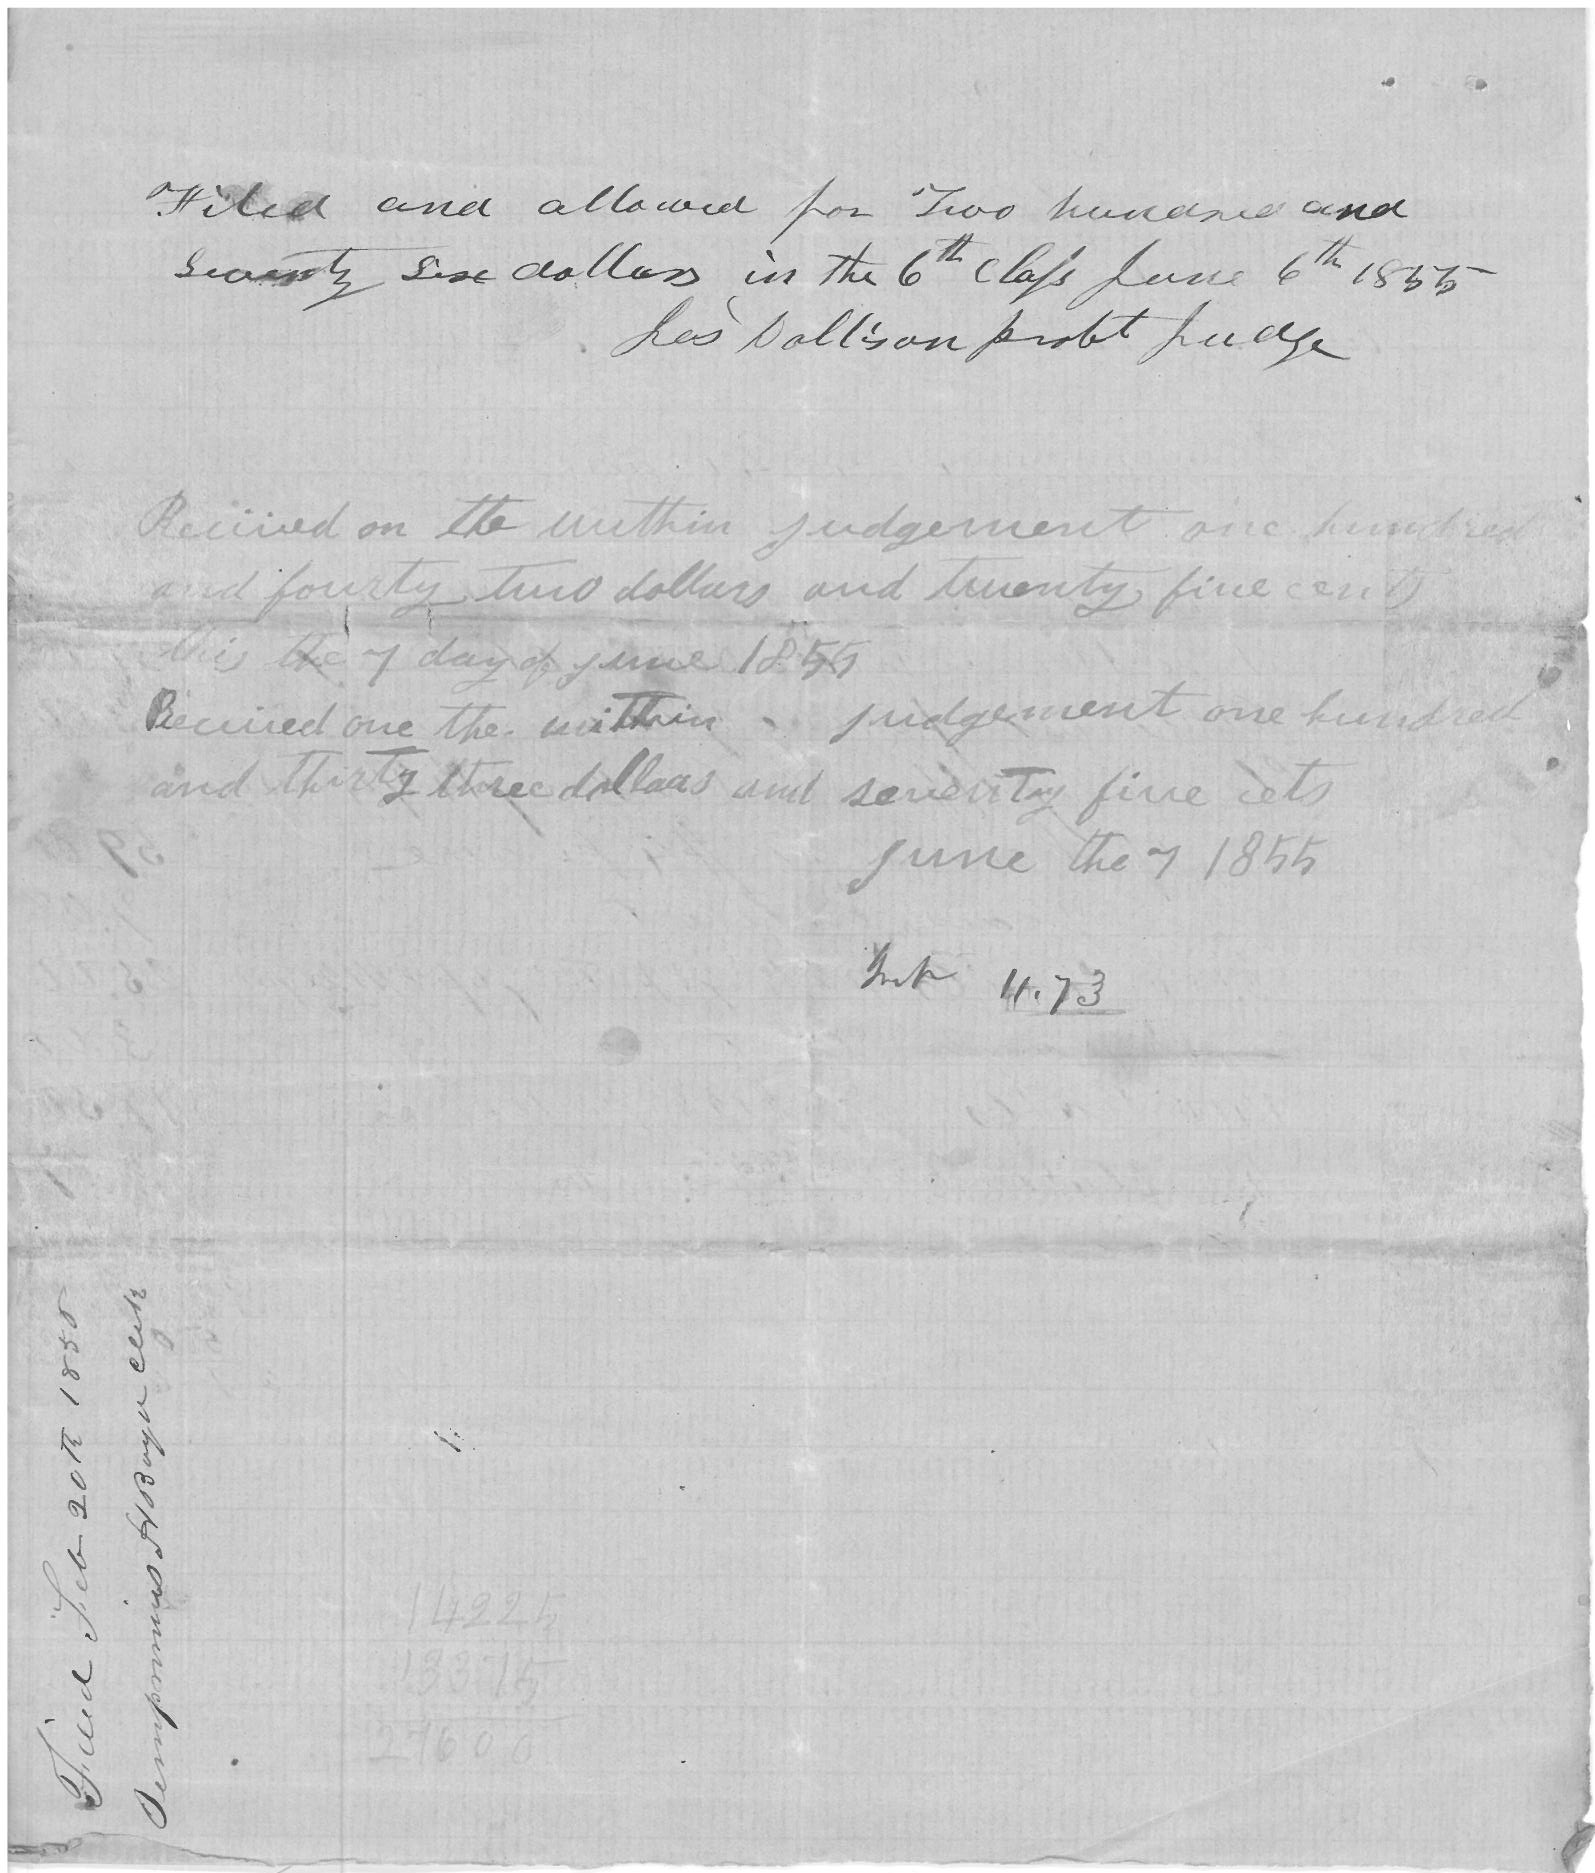 Filed and allowed for Two hundred and
Seventy Six dollars in the 6th Class June 6th 1855
Jas Dollison probt Judge
Reciived on the within judgement one hundred
and fourty two dollars and twenty five cents
this the 7 day of june 1855
Recieved one the within judgement one hundred
and thirty three dollars and seventy five cets
june the 7 1855
Int 4.73
14225
13375
27600
Filed Feb 20th 1855
Boyd Clerk